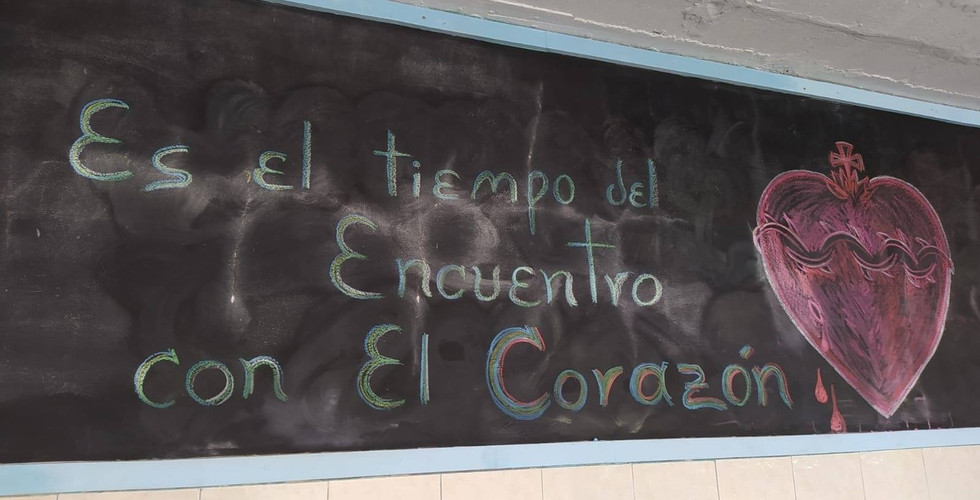 Es el tiempo del
Encuentro
con El Corazón